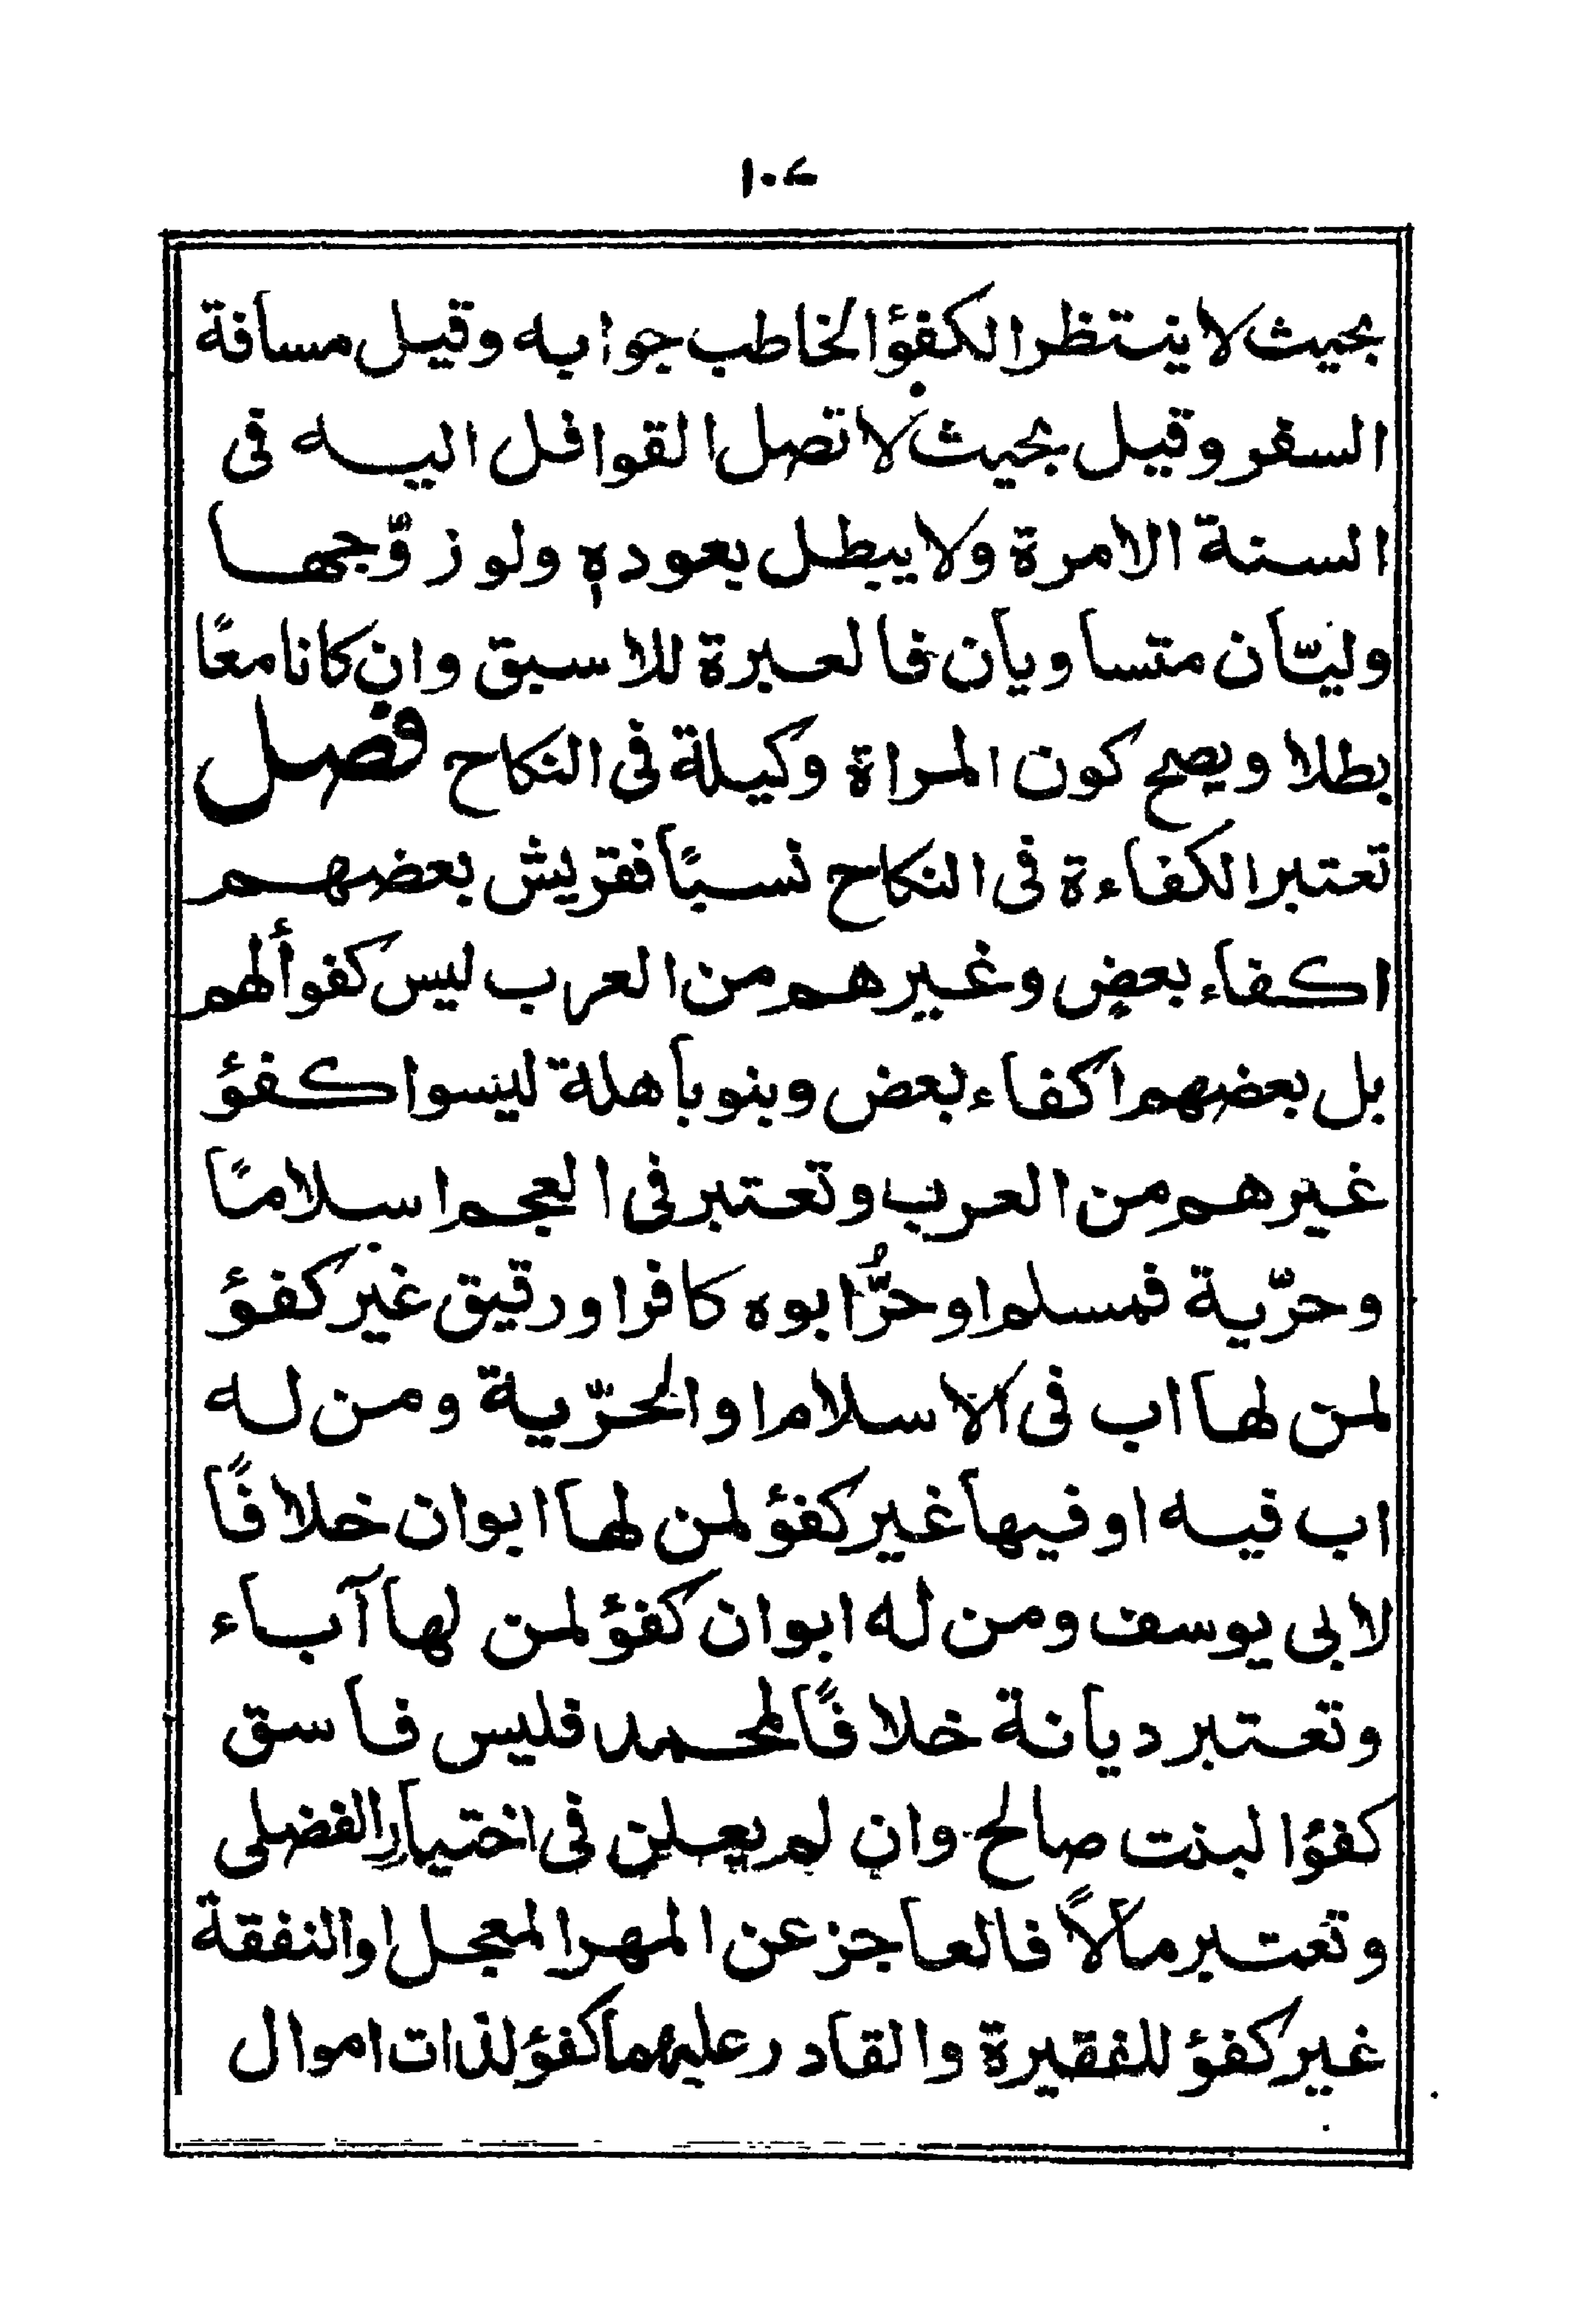 ١٠٤
بحيث لا ينتظر الكفؤ الخاطب جوابه وقيل مسافة
السفر وقيل بحيث لا تصل القوافل اليه فى
السنة الامرة ولا يبطل بعوده ولو زوّجها
وليّان متساويان فالعبرة للاسبق وان كانا معًا
بطلا ويصح كون المراة وكيلة فى النكاح فصل
تعتبر الكفاءة فى النكاح نسبًا فقريش بعضهم
اكفاء بعض وغيرهم من العرب ليس كفوأ لهم
بل بعضهم اكفاء بعض وبنو باهلة ليسوا كفؤ
غيرهم من العرب وتعتبر فى العجم اسلامًا
وحرّية فمسلم او حرٌّ ابوه كافر او رقيق غير كفؤ
لمن لها اب فى الاسلام او الحرّية ومن له
اب فيه او فيها غير كفؤ لمن لها ابوان خلافًا
لابى يوسف ومن له ابوان كفؤ لمن لها آباء
وتعتبر ديانة خلافًا لمحمد فليس فاسق
كفؤا لبنت صالح وان لم يعلن فى اختيار الفضلى
وتعتبر مالًا فالعاجز عن المهر المعجل او النفقة
غير كفؤ للفقيرة والقادر عليهما كفؤ لذات اموال